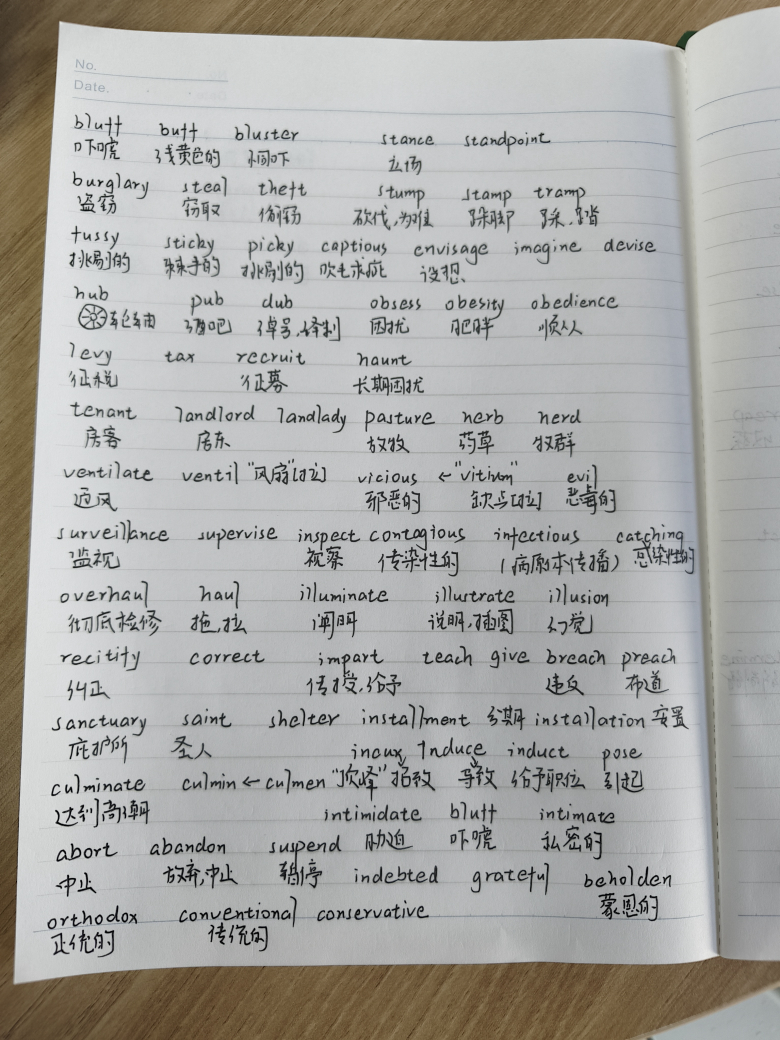 No.
Date.
bluff buff bluster stance standpoint
吓唬 浅黄色的 恫吓 立场
burglary steal theft stump stamp tramp
盗窃 窃取 偷窃 砍伐,为难 跺脚 踩,踏
fussy sticky picky captious envisage imagine devise
挑剔的 棘手的 挑剔的 吹毛求疵 设想
hub pub dub obsess obesity obedience
车毂 酒吧 绰号,译制 困扰 肥胖 顺从
levy tax recruit haunt
征税 征募 长期困扰
tenant landlord landlady pasture herb herd
房客 房东 放牧 药草 牧群
ventilate ventil "风扇"[拉] vicious ← "vitium" evil
通风 邪恶的 缺点[拉] 恶毒的
surveillance supervise inspect contagious infectious catching
监视 视察 传染性的 (病原体传播) 感染性的
overhaul haul illuminate illustrate illusion
彻底检修 拖,拉 阐明 说明,插图 幻觉
recitify correct impart teach give breach preach
纠正 传授,给予 违反 布道
sanctuary saint shelter installment 分期 installation 安置
庇护所 圣人 incur induce induct pose
culminate culmin ← culmen "顶峰" 招致 导致 给予职位 引起
达到高潮 intimidate bluff intimate
abort abandon suspend 胁迫 吓唬 私密的
中止 放弃,中止 暂停 indebted grateful beholden
orthodox conventional conservative 蒙恩的
正统的 传统的